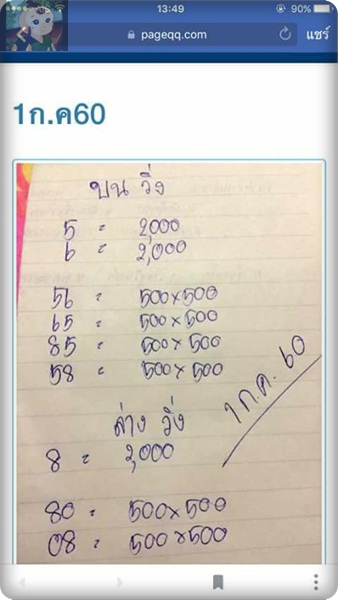 13:49
90%
pageqq.com
แชร์
1ก.ค60
บน วิ่ง
5 = 2,000
6 = 2,000
56 = 500x500
65 = 500x500
85 = 500x500
58 = 500x500
1 ก.ค. 60
ล่าง วิ่ง
8 = 2,000
80 = 500x500
08 = 500x500